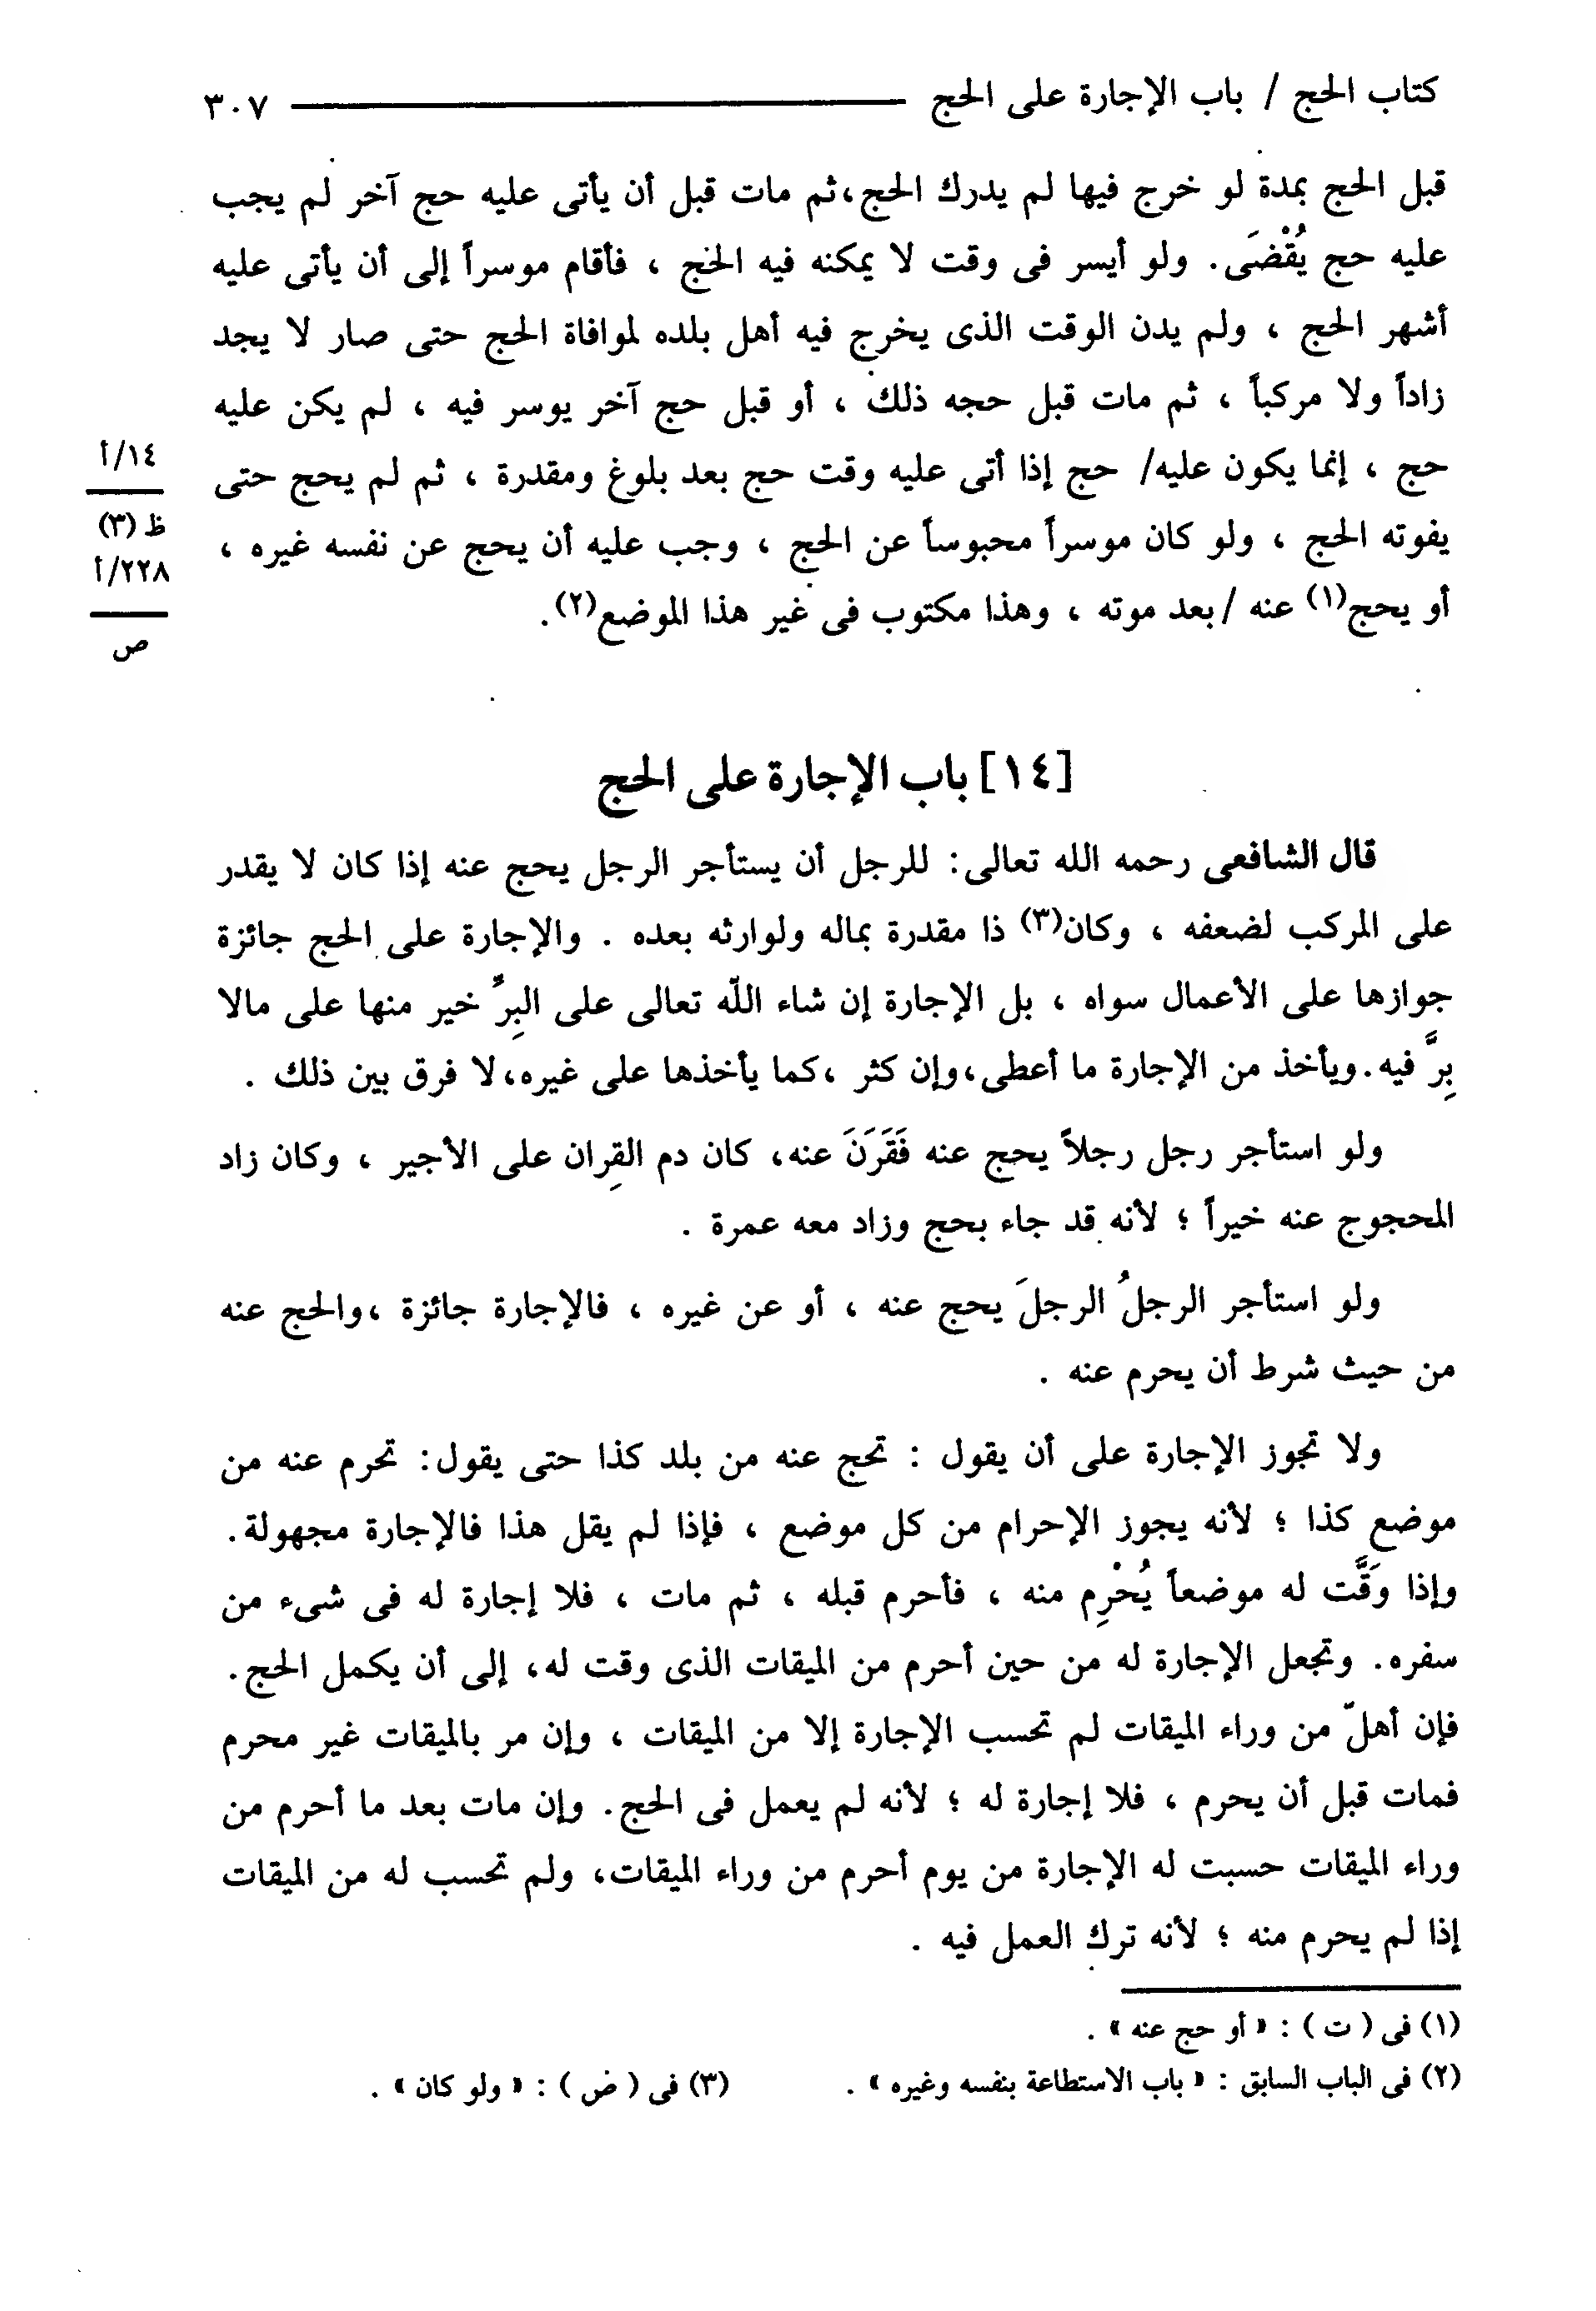 كتاب الحج / باب الإجارة على الحج ــــــــــــــــــــ ٣٠٧
قبل الحج بمدة لو خرج فيها لم يدرك الحج،ثم مات قبل أن يأتى عليه حج آخر لم يجب
عليه حج يُقْضَى. ولو أيسر فى وقت لا يمكنه فيه الحج ، فأقام موسراً إلى أن يأتى عليه
أشهر الحج ، ولم يدن الوقت الذى يخرج فيه أهل بلده لموافاة الحج حتى صار لا يجد
زاداً ولا مركباً ، ثم مات قبل حجه ذلك ، أو قبل حج آخر يوسر فيه ، لم يكن عليه
حج ، إنما يكون عليه/ حج إذا أتى عليه وقت حج بعد بلوغ ومقدرة ، ثم لم يحج حتى
يفوته الحج ، ولو كان موسراً محبوساً عن الحج ، وجب عليه أن يحج عن نفسه غيره ،
أو يحج(١) عنه /بعد موته ، وهذا مكتوب فى غير هذا الموضع(٢).
١٤/أ
ظ (٣)
٢٢٨/أ
ص
[١٤] باب الإجارة على الحج
قال الشافعى رحمه الله تعالى: للرجل أن يستأجر الرجل يحج عنه إذا كان لا يقدر
على المركب لضعفه ، وكان(٣) ذا مقدرة بماله ولوارثه بعده . والإجارة على الحج جائزة
جوازها على الأعمال سواه ، بل الإجارة إن شاء الله تعالى على البِرِّ خير منها على مالا
بِرَّ فيه.ويأخذ من الإجارة ما أعطى،وإن كثر ،كما يأخذها على غيره،لا فرق بين ذلك .
ولو استأجر رجل رجلاً يحج عنه فَقَرَنَ عنه، كان دم القِران على الأجير ، وكان زاد
المحجوج عنه خيراً ؛ لأنه قد جاء بحج وزاد معه عمرة .
ولو استأجر الرجلُ الرجلَ يحج عنه ، أو عن غيره ، فالإجارة جائزة ،والحج عنه
من حيث شرط أن يحرم عنه .
ولا تجوز الإجارة على أن يقول : تحج عنه من بلد كذا حتى يقول: تحرم عنه من
موضع كذا ؛ لأنه يجوز الإحرام من كل موضع ، فإذا لم يقل هذا فالإجارة مجهولة.
وإذا وَقَّت له موضعاً يُحْرِم منه ، فأحرم قبله ، ثم مات ، فلا إجارة له فى شىء من
سفره. وتجعل الإجارة له من حين أحرم من الميقات الذى وقت له، إلى أن يكمل الحج.
فإن أهلّ من وراء الميقات لم تحسب الإجارة إلا من الميقات ، وإن مر بالميقات غير محرم
فمات قبل أن يحرم ، فلا إجارة له ؛ لأنه لم يعمل فى الحج. وإن مات بعد ما أحرم من
وراء الميقات حسبت له الإجارة من يوم أحرم من وراء الميقات، ولم تحسب له من الميقات
إذا لم يحرم منه ؛ لأنه ترك العمل فيه .
(١) فى ( ت ) : « أو حج عنه » .
(٢) فى الباب السابق : « باب الاستطاعة بنفسه وغيره » . (٣) فى ( ض ) : « ولو كان » .